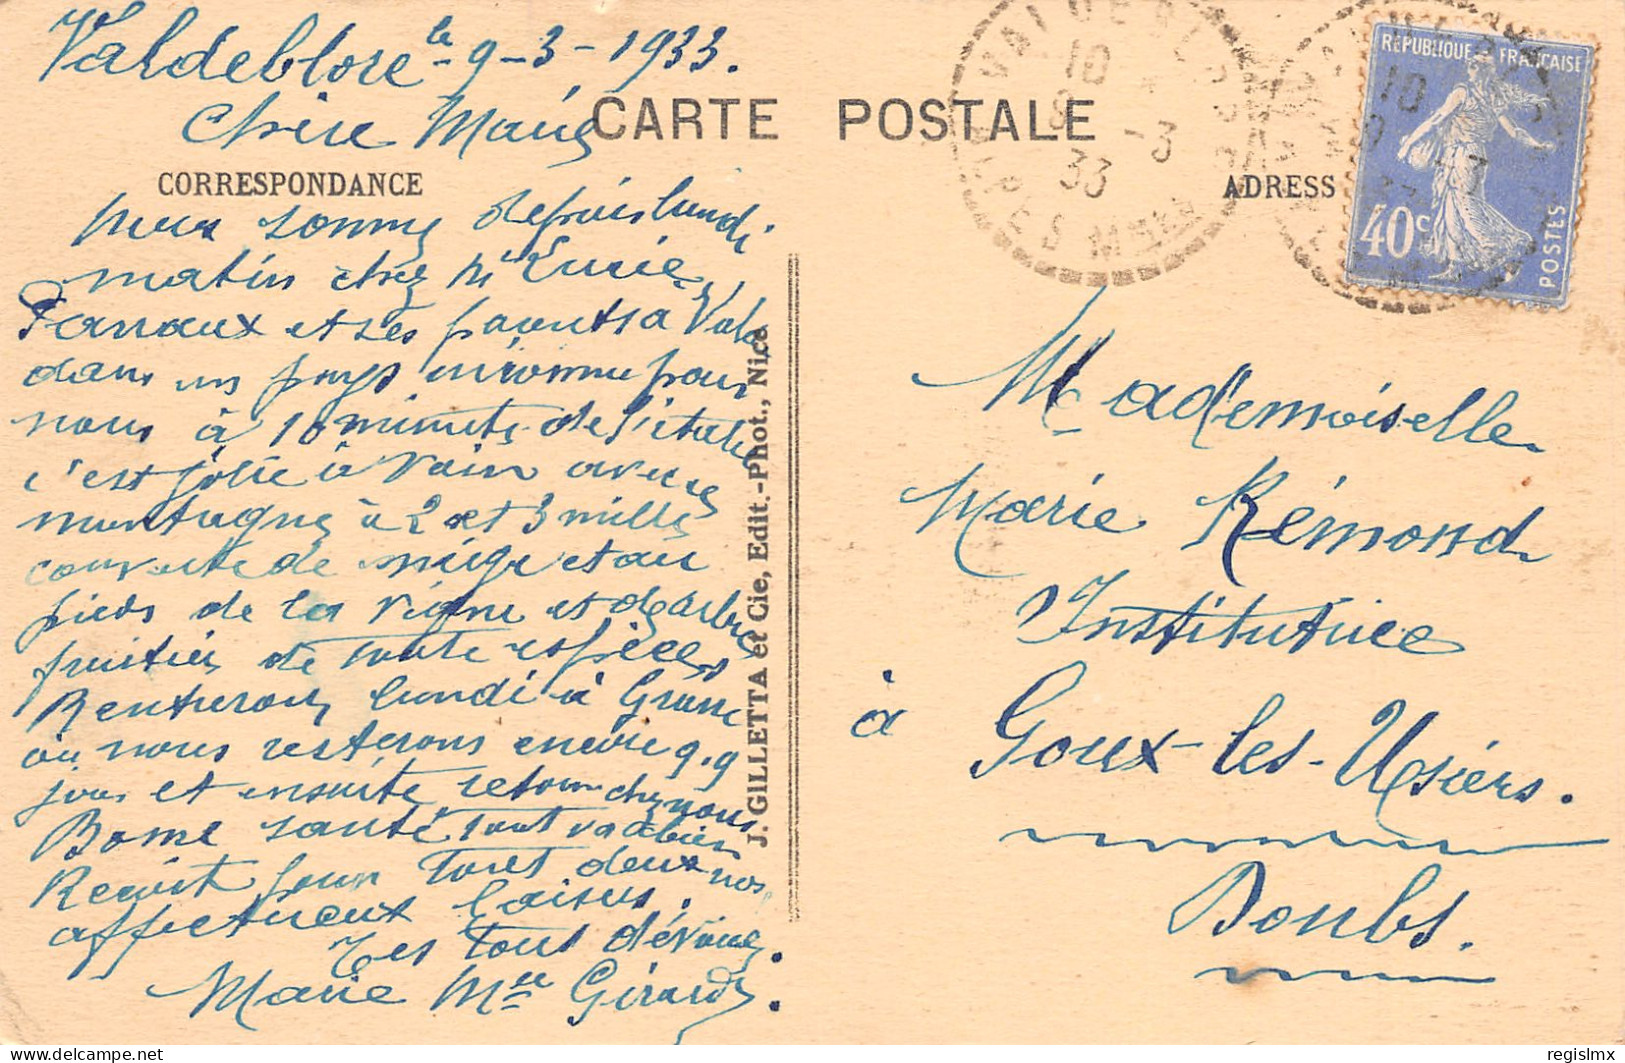 Valdeblore le 9-3-1933.
CARTE POSTALE
Chère Marie
CORRESPONDANCE
Nous sommes depuis lundi
matin chez Mr
et ses parents a Vald
dans un pays inconnu pour
nous à 10 minute de l'italie
c'est jolie à voir avec ses
montagnes à 2 et 3 mille
couverte de neige et au
pieds de la vigne et des arbres
fruitiers de toute espèces
Rentrerons lundi à Grasse
où nous resterons encore q.q
jours et ensuite retour chez nous
Bonne santé tout va bien
Reçoit pour tout deux nos
affectueux baisers.
Tes tous dévoués.
Marie Mce Girard.
J. GILLETTA et Cie, Edit.-Phot., Nice
VALDEBLORE
10
9 -3
33
ALPES MMES
ADRESS
RÉPUBLIQUE FRANÇAISE
10
-3
40c
POSTES
Mademoiselle
Marie Rémond
Institutrice
à Goux-les-Usiers.
Doubs.
delcampe.net
regislmx